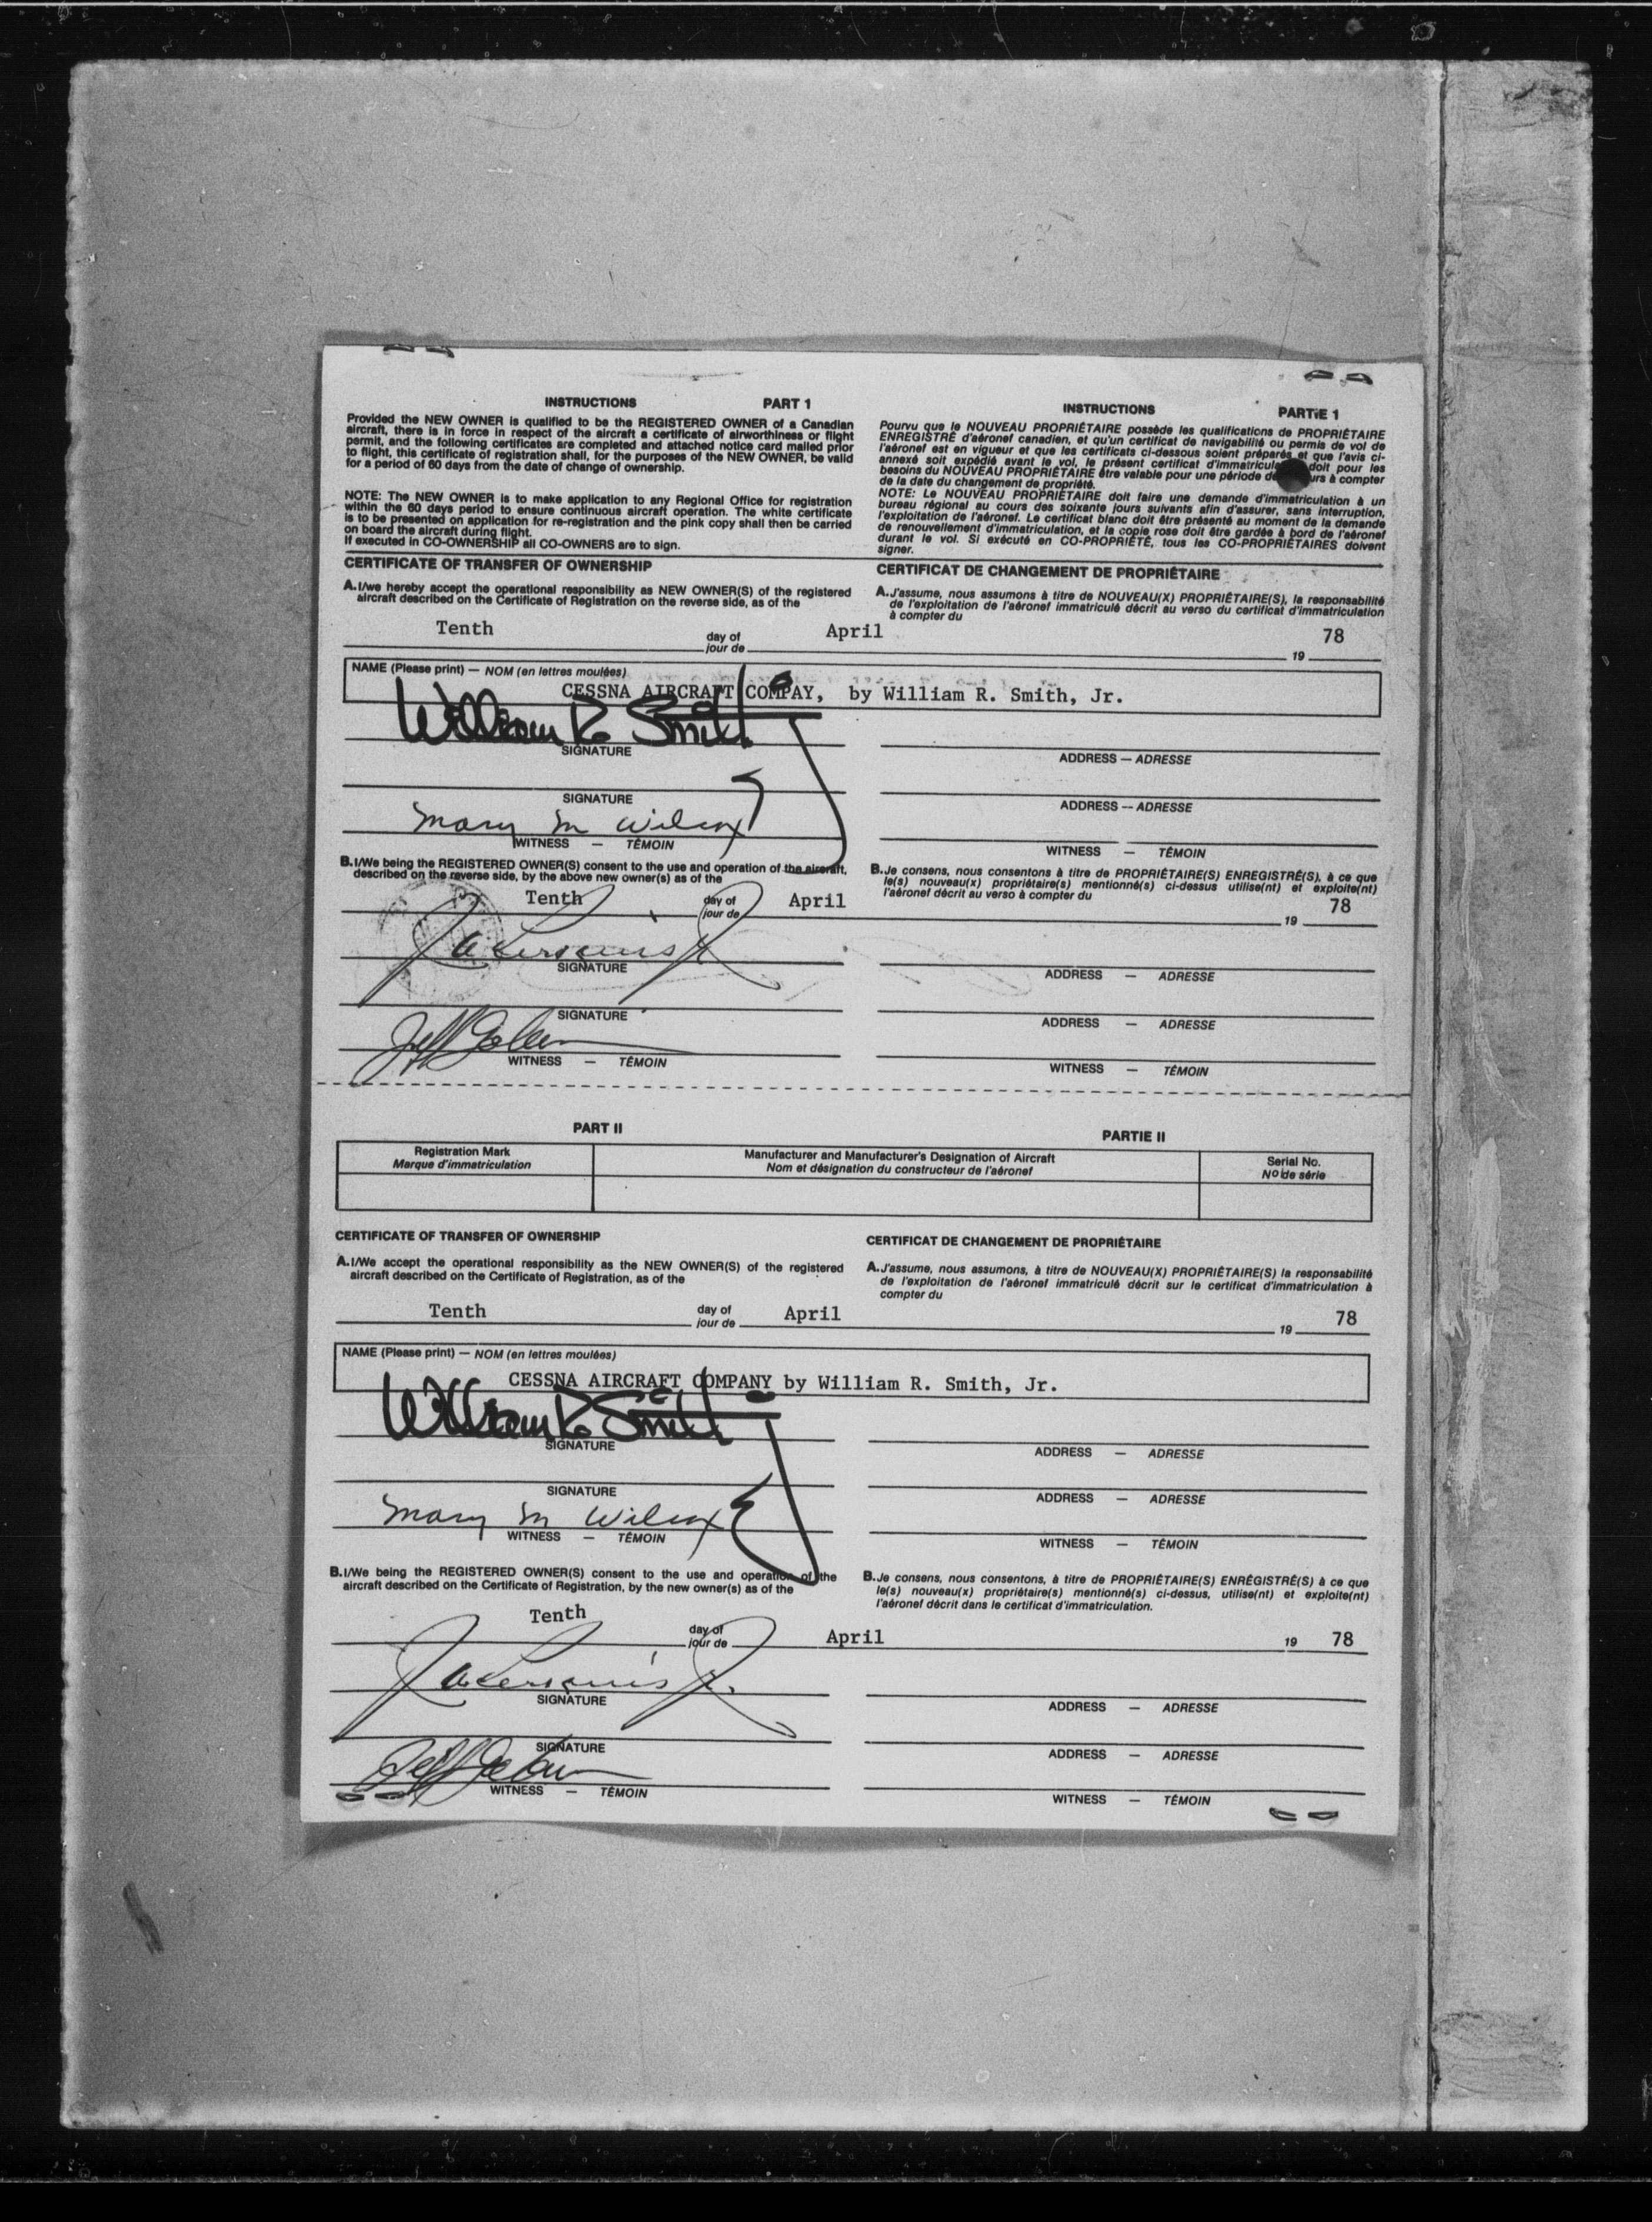 INSTRUCTIONS PART 1
Provided the NEW OWNER is qualified to be the REGISTERED OWNER of a Canadian
aircraft, there is in force in respect of the aircraft a certificate of airworthiness or flight
permit, and the following certificates are completed and attached notice card mailed prior
to flight, this certificate of registration shall, for the purposes of the NEW OWNER, be valid
for a period of 60 days from the date of change of ownership.
NOTE: The NEW OWNER is to make application to any Regional Office for registration
within the 60 days period to ensure continuous aircraft operation. The white certificate
is to be presented on application for re-registration and the pink copy shall then be carried
on board the aircraft during flight.
If executed in CO-OWNERSHIP all CO-OWNERS are to sign.
INSTRUCTIONS PARTIE 1
Pourvu que le NOUVEAU PROPRIÉTAIRE possède les qualifications de PROPRIÉTAIRE
ENREGISTRÉ d'aéronef canadien, et qu'un certificat de navigabilité ou permis de vol de
l'aéronef est en vigueur et que les certificats ci-dessous soient préparés et que l'avis ci-
annexé soit expédié avant le vol, le présent certificat d'immatricula doit pour les
besoins du NOUVEAU PROPRIÉTAIRE être valable pour une période de urs à compter
de la date du changement de propriété.
NOTE: Le NOUVEAU PROPRIÉTAIRE doit faire une demande d'immatriculation à un
bureau régional au cours des soixante jours suivants afin d'assurer, sans interruption,
l'exploitation de l'aéronef. Le certificat blanc doit être présenté au moment de la demande
de renouvellement d'immatriculation, et la copie rose doit être gardée à bord de l'aéronef
durant le vol. Si exécuté en CO-PROPRIÉTÉ, tous les CO-PROPRIÉTAIRES doivent
signer.
CERTIFICATE OF TRANSFER OF OWNERSHIP
A. I/we hereby accept the operational responsibility as NEW OWNER(S) of the registered
aircraft described on the Certificate of Registration on the reverse side, as of the
CERTIFICAT DE CHANGEMENT DE PROPRIÉTAIRE
A. J'assume, nous assumons à titre de NOUVEAU(X) PROPRIÉTAIRE(S), la responsabilité
de l'exploitation de l'aéronef immatriculé décrit au verso du certificat d'immatriculation
à compter du
Tenth day of April 19 78
jour de
NAME (Please print) — NOM (en lettres moulées)
CESSNA AIRCRAFT COMPAY, by William R. Smith, Jr.
William R. Smith Jr
SIGNATURE ADDRESS — ADRESSE
SIGNATURE ADDRESS -- ADRESSE
Mary M Wilcox
WITNESS — TÉMOIN WITNESS — TÉMOIN
B. I/We being the REGISTERED OWNER(S) consent to the use and operation of the aircraft,
described on the reverse side, by the above new owner(s) as of the
B. Je consens, nous consentons à titre de PROPRIÉTAIRE(S) ENREGISTRÉ(S), à ce que
le(s) nouveau(x) propriétaire(s) mentionné(s) ci-dessus utilise(nt) et exploite(nt)
l'aéronef décrit au verso à compter du
Tenth day of April 19 78
jour de
SIGNATURE ADDRESS — ADRESSE
SIGNATURE ADDRESS — ADRESSE
Jeff
WITNESS — TÉMOIN WITNESS — TÉMOIN
PART II PARTIE II
Registration Mark Manufacturer and Manufacturer's Designation of Aircraft Serial No.
Marque d'immatriculation Nom et désignation du constructeur de l'aéronef Nº de série
CERTIFICATE OF TRANSFER OF OWNERSHIP
A. I/We accept the operational responsibility as the NEW OWNER(S) of the registered
aircraft described on the Certificate of Registration, as of the
CERTIFICAT DE CHANGEMENT DE PROPRIÉTAIRE
A. J'assume, nous assumons, à titre de NOUVEAU(X) PROPRIÉTAIRE(S) la responsabilité
de l'exploitation de l'aéronef immatriculé décrit sur le certificat d'immatriculation à
compter du
Tenth day of April 19 78
jour de
NAME (Please print) — NOM (en lettres moulées)
CESSNA AIRCRAFT COMPANY by William R. Smith, Jr.
William R. Smith Jr
SIGNATURE ADDRESS — ADRESSE
SIGNATURE ADDRESS — ADRESSE
Mary M Wilcox
WITNESS — TÉMOIN WITNESS — TÉMOIN
B. I/We being the REGISTERED OWNER(S) consent to the use and operation of the
aircraft described on the Certificate of Registration, by the new owner(s) as of the
B. Je consens, nous consentons, à titre de PROPRIÉTAIRE(S) ENRÉGISTRÉ(S) à ce que
le(s) nouveau(x) propriétaire(s) mentionné(s) ci-dessus, utilise(nt) et exploite(nt)
l'aéronef décrit dans le certificat d'immatriculation.
Tenth day of April 19 78
jour de
SIGNATURE ADDRESS — ADRESSE
SIGNATURE ADDRESS — ADRESSE
Jeff
WITNESS — TÉMOIN WITNESS — TÉMOIN